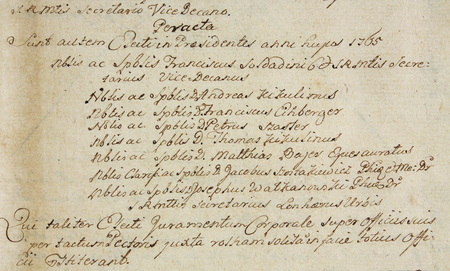 S. R. Mtis Secretario Vice Decano.
Peracta
Sunt autem Electi in Præsidentes anni hujus 1765
Nblis ac Spblis Franciscus Soldadini S. R. Mtis Secre-
tarius Vice Decanus
Nblis ac Spblis D. Andreas Kikulinus
Nblis ac Spblis D. Franciscus Eihberger
Nblis ac Spblis D. Petrus Szaster
Nblis ac Spblis D. Thomas Kikulinus
Nblis ac Spblis D. Matthias Bajer Eques auratus
Nblis Clariss ac Spblis D. Jacobus Phiæ et Me: Dr
Nblis ac Spblis Josephus Watkanowski Phiæ Dr
S. R. Mttis Secretarius Urbis
Qui taliter Electi Juramentum Corporale super Officiis suis
per tactum Pectoris juxta rotham solitam in facie totius Offi-
cii